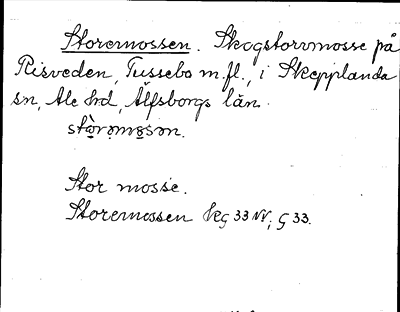 Storemossen. Skogstorvmosse på
Risveden, Tussebo m.fl., i Skepplanda
sn, Ale hd, Älfsborgs län.
stòrəmɷsən.
Stor mosse.
Storemossen Kg 33 NV, G 33.